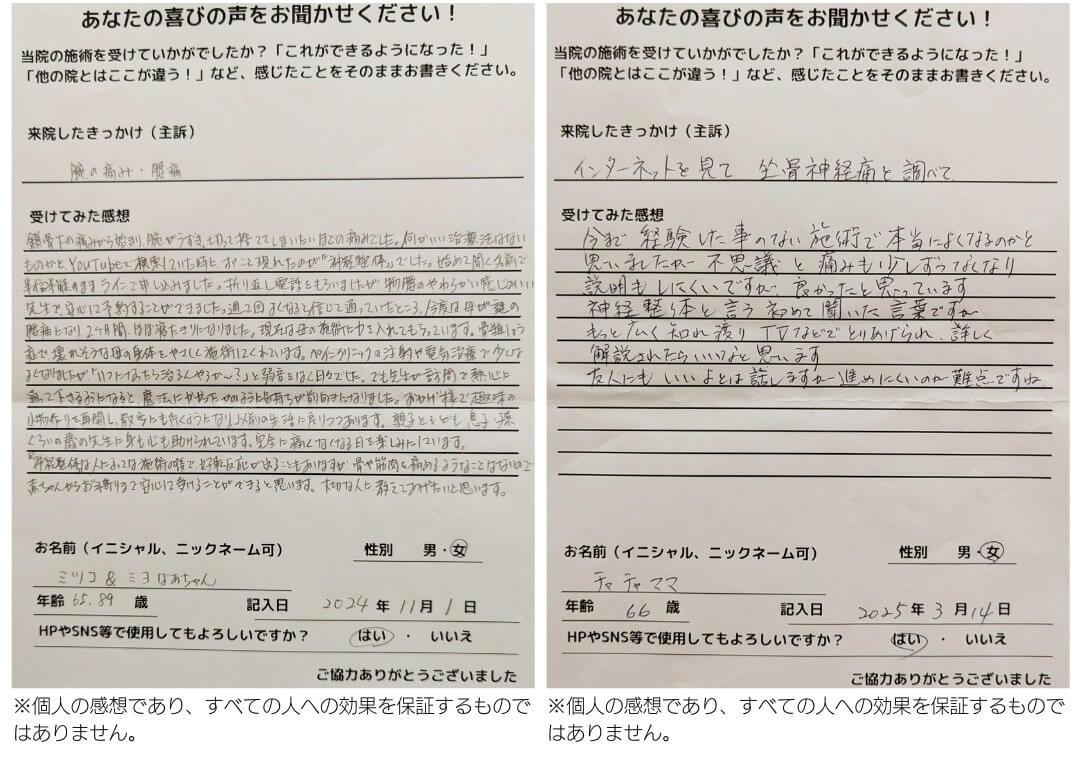 あなたの喜びの声をお聞かせください！
当院の施術を受けていかがでしたか？「これができるようになった！」
「他の院とはここが違う！」など、感じたことをそのままお書きください。
来院したきっかけ（主訴）
腕の痛み・腰痛
受けてみた感想
鎖骨下の痛みから始まり、腕がうずき、切って捨ててしまいたいほどの痛みでした。何かいい治療法はない
ものかと、YouTubeで検索していた時に、ポンと現れたのが"神経整体"でした。始めて聞く名前で
半信半疑のままラインで申し込みました。折り返し電話をもらいましたが物腰のやわらかい感じのいい
先生で安心して予約することができました。週2回よくなると信じて通っていたところ、今度は母が謎の
腰痛になり2ヶ月間、ほぼ寝たきりになりました。現在は母の施術に力を入れてもらっています。骨粗しょう
症で壊れそうな母の身体をやさしく施術してくれています。ペインクリニックの注射や電気治療で少しは
よくなりましたが、「いつになったら治るんやろか〜？」と弱音をはく日々でした。でも先生が訪問で熱心に
通って下さるようになると、魔法にかかったかのように気持ちが前向きになりました。おかげ様で趣味の
小物作りを再開し、散歩にも行くようになり以前の生活に戻りつつあります。親子ともども息子・孫
くらいの歳の先生に身も心も助けられています。完全に痛くなくなる日を楽しみにしています。
神経整体は人によっては施術の後で好転反応が出ることもありますが骨や筋肉を痛めるようなことはないので
赤ちゃんからお年寄りまで安心して受けることができると思います。大切な人に教えてあげたいと思います。
お名前（イニシャル、ニックネーム可）　性別　男・女
ミツコ & ミヨばあちゃん
年齢 65.89 歳　記入日　2024年 11月 1日
HPやSNS等で使用してもよろしいですか？　はい・いいえ
ご協力ありがとうございました
※個人の感想であり、すべての人への効果を保証するもので
はありません。
あなたの喜びの声をお聞かせください！
当院の施術を受けていかがでしたか？「これができるようになった！」
「他の院とはここが違う！」など、感じたことをそのままお書きください。
来院したきっかけ（主訴）
インターネットを見て　坐骨神経痛と調べて
受けてみた感想
今まで経験した事のない施術で本当によくなるのかと
思いましたが不思議と痛みも少しずつなくなり
説明もしにくいですが、良かったと思っています
神経整体と言う初めて聞いた言葉ですが
もっと広く知れ渡りTVなどでとりあげられ、詳しく
解説されたらいいなと思います
友人にもいいよとは話しますが進めにくいのが難点ですね
お名前（イニシャル、ニックネーム可）　性別　男・女
チャチャママ
年齢 66 歳　記入日　2025年 3月 14日
HPやSNS等で使用してもよろしいですか？　はい・いいえ
ご協力ありがとうございました
※個人の感想であり、すべての人への効果を保証するもので
はありません。